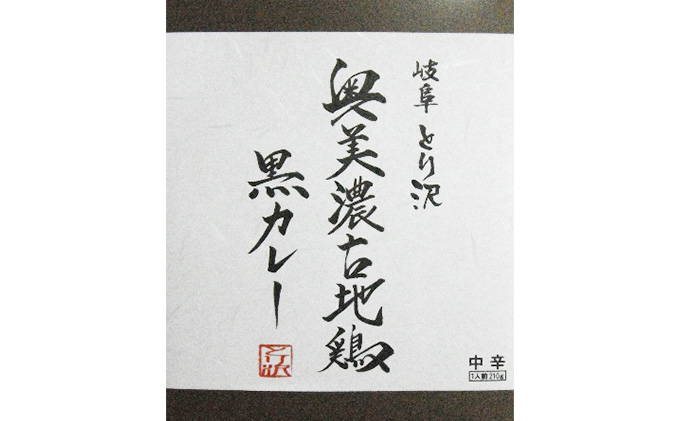 岐阜 とり沢
奥美濃古地鶏
黒カレー
とり沢
中辛
1人前 210g